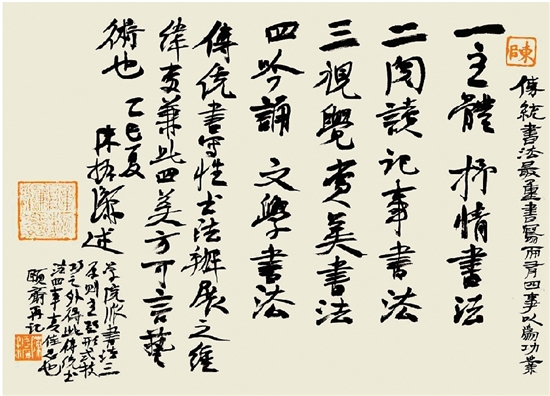 陳
傳統書法最重書寫而有四事以為功業
一主體 抒情書法
二閱讀 記事書法
三視覺 賞美書法
四吟誦 文學書法
傳統書寫性書法拓展之經
緯 兼此四美方可言藝
術也 乙巳夏
陳振濂述
學院派書法三
原則主題形式技
巧之外得此傳統書
法四事 責任 也
頤齋再記